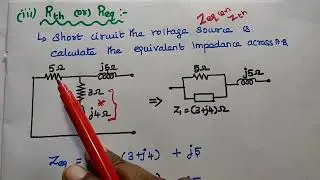 (iii) Rth (or) Req :-
Zeq (or) Zth
→ Short circuit the voltage source &
calculate the equivalent impedance across A-B
5Ω j5Ω 5Ω j5Ω
3Ω
j4Ω
⇒
Z₁ = (3+j4)Ω
Zeq = (3+j4) + j5